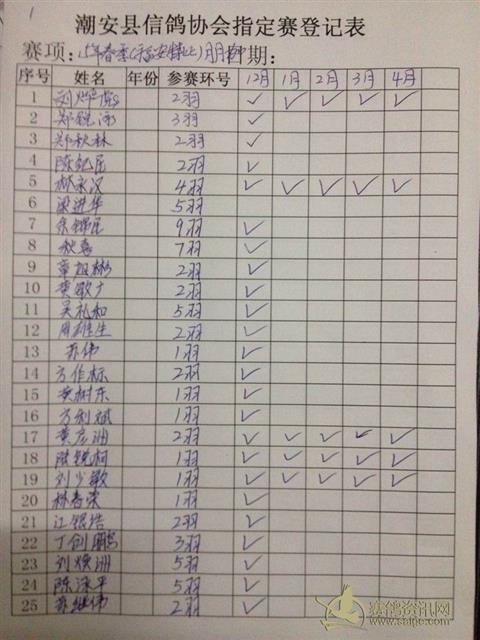 1
潮安县信鸽协会指定赛登记表
赛项: 15年春季(福安特比)月月 期:
序号 姓名 年份 参赛环号 12月 1月 2月 3月 4月
1 刘 2羽 ✓ ✓ ✓ ✓ ✓
2 郑锐 3羽 ✓
3 郑秋林 2羽 ✓
4 陈 2羽 ✓
5 林永汉 4羽 ✓ ✓ ✓ ✓ ✓
6 梁进华 5羽
7 余锦 9羽 ✓
8 秋喜 7羽 ✓
9 章祖彬 2羽 ✓
10 黄敬 2羽 ✓
11 吴礼和 5羽 ✓
12 周雄生 2羽 ✓
13 苏伟 1羽 ✓
14 方作标 2羽 ✓
15 黄树东 1羽 ✓
16 方利斌 1羽 ✓
17 黄彦洲 2羽 ✓ ✓ ✓ ✓ ✓
18 陈锐柯 1羽 ✓ ✓ ✓ ✓ ✓
19 刘少敏 1羽 ✓ ✓ ✓ ✓ ✓
20 林春荣 1羽 ✓
21 江银浩 2羽 ✓
22 丁创鹏 3羽 ✓
23 刘焕洲 5羽 ✓
24 陈泳平 5羽 ✓
25 苏继伟 2羽 ✓
赛鸽资讯网
www.saige.com